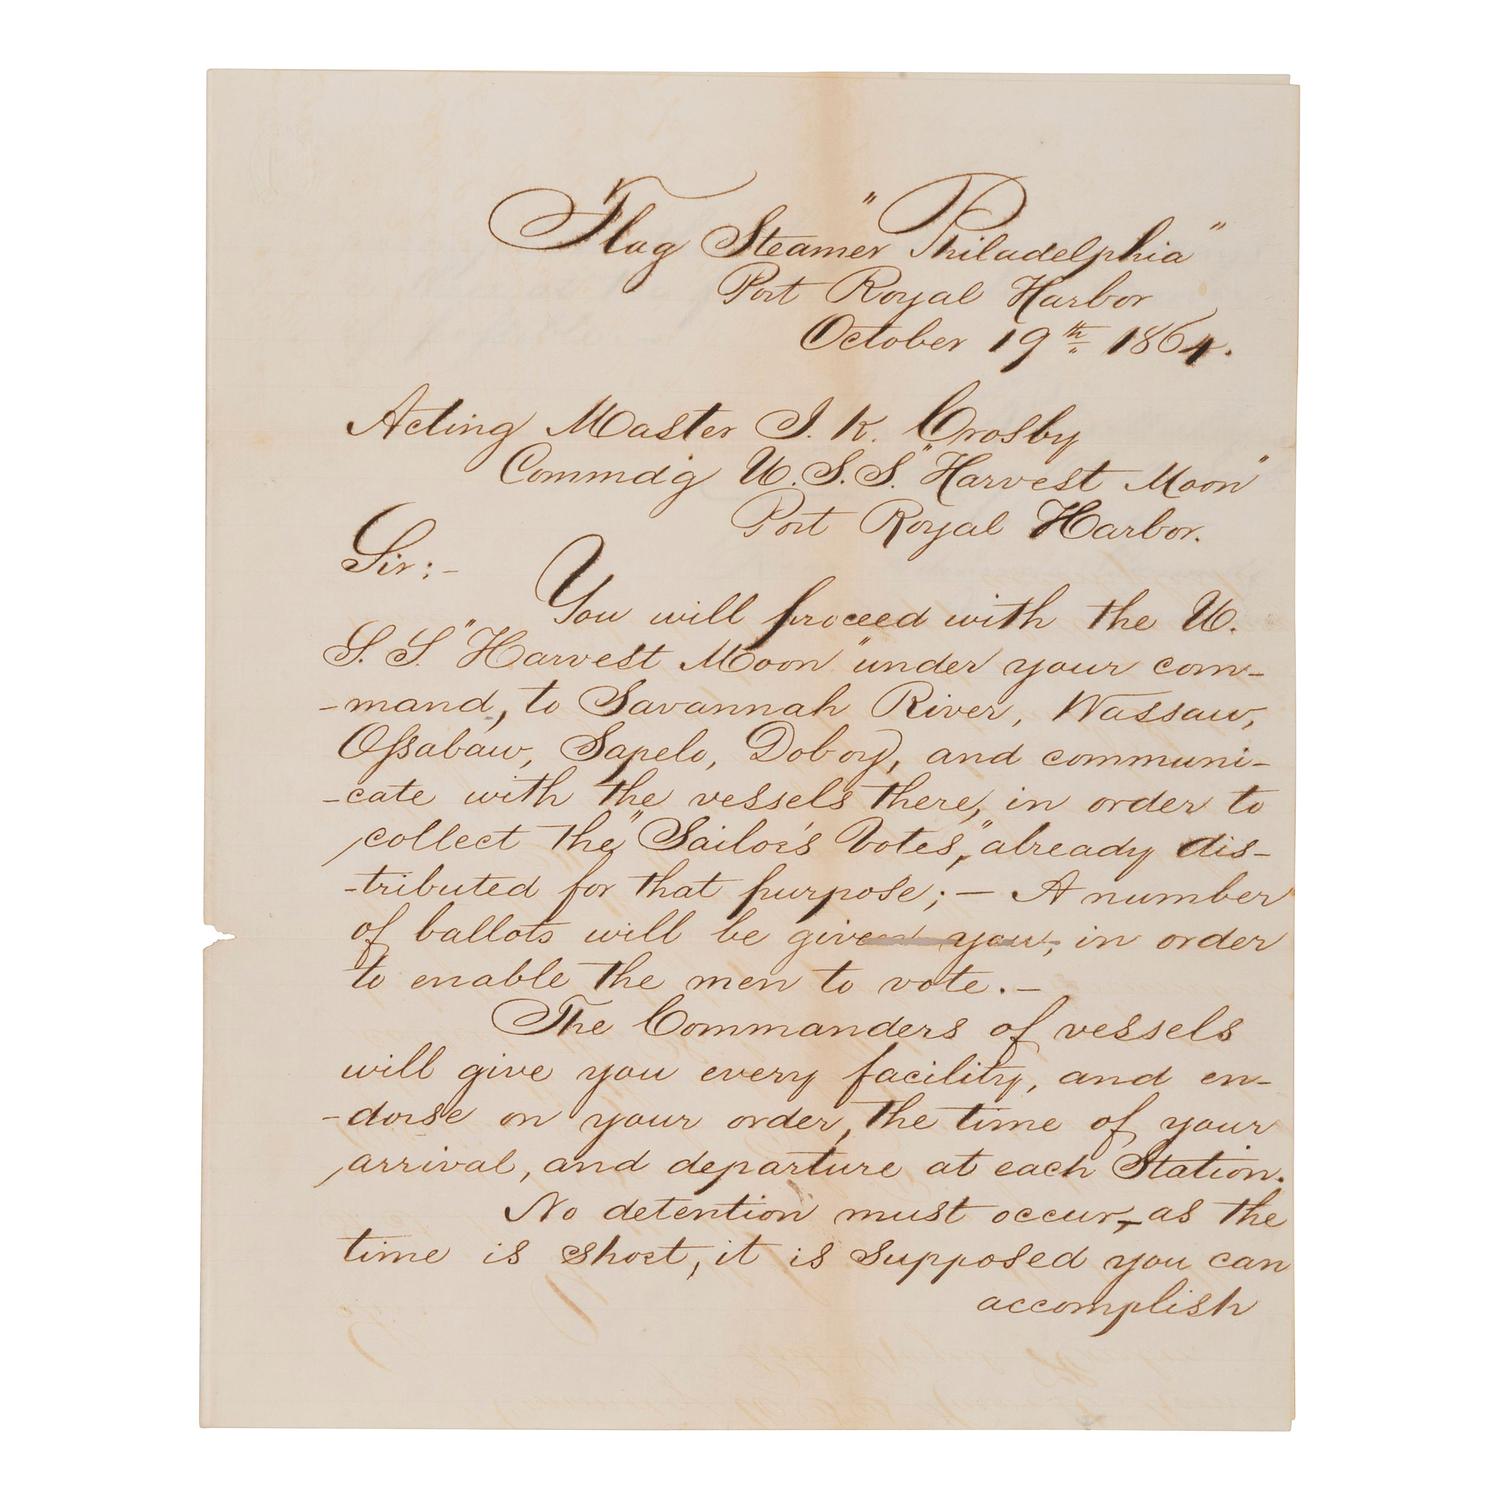 Flag Steamer "Philadelphia"
Port Royal Harbor
October 19th 1864.
Acting Master J. K. Crosby
Commdg U.S.S. "Harvest Moon"
Port Royal Harbor.
Sir:-
You will proceed with the U.
S. S. "Harvest Moon" under your com-
-mand, to Savannah River, Wassaw,
Ossabaw, Sapelo, Doboy, and communi-
-cate with the vessels there, in order to
collect the "Sailor's Votes," already dis-
-tributed for that purpose; — A number
of ballots will be given you, in order
to enable the men to vote.—
The Commanders of vessels
will give you every facility, and en-
-dorse on your order, the time of your
arrival, and departure at each Station.
No detention must occur, as the
time is short, it is supposed you can
accomplish